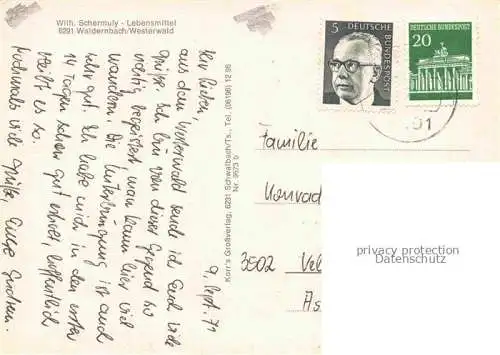 Wilh. Schermuly - Lebensmittel
6291 Waldernbach/Westerwald
9. Sept. 71
Ihr Lieben,
aus dem Westerwald sende ich Euch viele
Grüße. Ich bin von dieser Gegend so
richtig begeistert, man kann hier viel
wandern. Die Unterbringung ist auch
sehr gut. Ich habe mich in den ersten
14 Tagen schon gut erholt, hoffentlich
bleibt es so.
Nochmals viele Grüße,
Korr's Großverlag, 6231 Schwalbach/Ts., Tel. (06196) 12 86
Nr. 9673 9
5
DEUTSCHE
BUNDESPOST
DEUTSCHE BUNDESPOST
20
Familie
Konrad
3502 Vel
As
privacy protection
Datenschutz